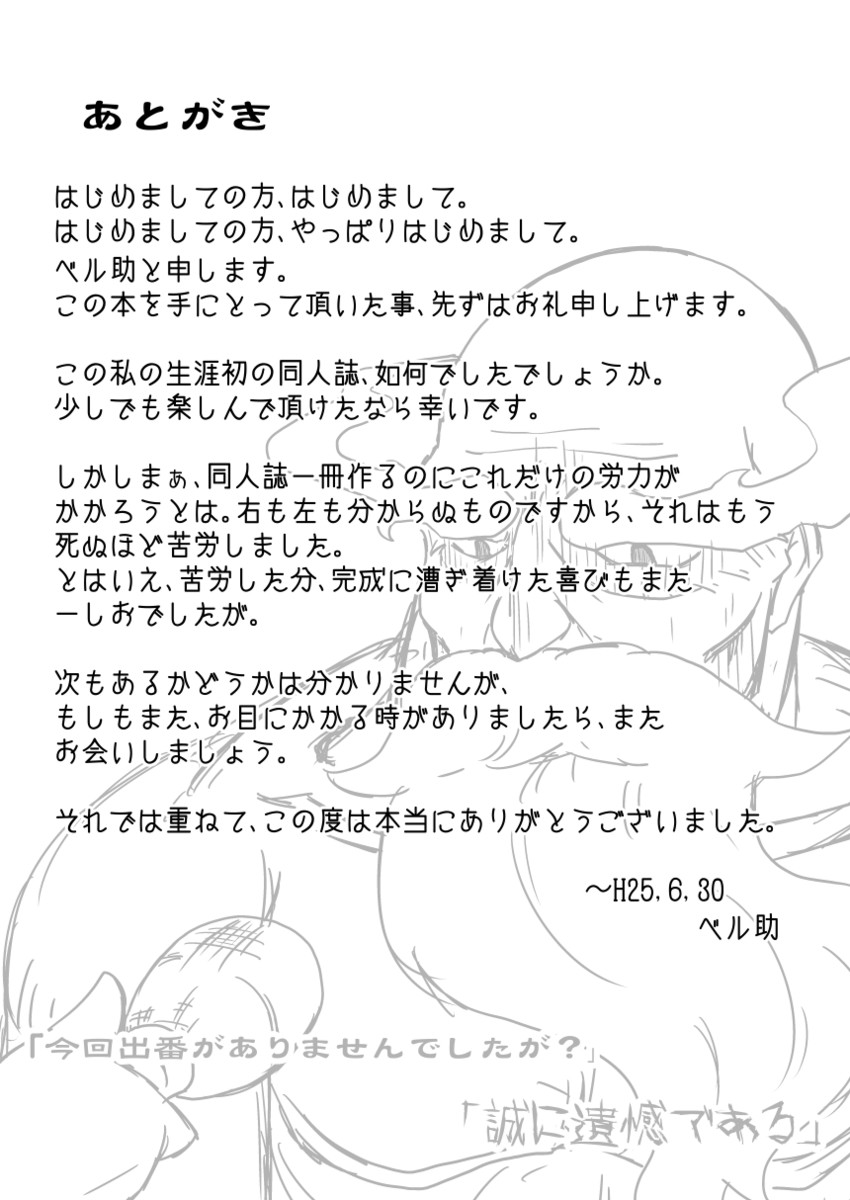 あとがき
はじめましての方、はじめまして。
はじめましての方、やっぱりはじめまして。
ベル助と申します。
この本を手にとって頂いた事、先ずはお礼申し上げます。
この私の生涯初の同人誌、如何でしたでしょうか。
少しでも楽しんで頂けたなら幸いです。
しかしまぁ、同人誌一冊作るのにこれだけの労力が
かかろうとは。右も左も分からぬものですから、それはもう
死ぬほど苦労しました。
とはいえ、苦労した分、完成に漕ぎ着けた喜びもまた
一しおでしたが。
次もあるかどうかは分かりませんが、
もしもまた、お目にかかる時がありましたら、また
お会いしましょう。
それでは重ねて、この度は本当にありがとうございました。
～H25,6,30
ベル助
「今回出番がありませんでしたが？」
「誠に遺憾である」